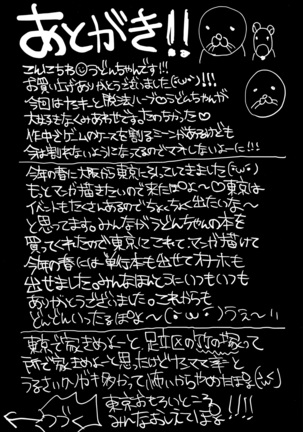 あとがき!!
こんにちわ うどんちゃんです!!!
お買い上げありがとうございました(・ω・)!!!
今回はヤンキーと脱法ハーブとうどんちゃんが
大好きなくみあわせですったのちった♡
作中でゲームのケースを割るシーンがあるけども
今は割れないようになってるのでマネしないよーに!!!
今年の春に大阪から東京に引っこしてきました(・ω・)
もっとマンガ描きたいので来たぽよ〜♡東京は
イベントもたくさんあるのでちょくちょく出たいな〜
と思ってます。みんながうどんちゃんの本を
買ってくれたので東京にこれて、マンガ描けて
今年の春には単行本も出せてオナホも
出せました。みんなほんとうにいつもいつも
ありがとうございました。これからも
どんどんいったるぽよ〜(・ω・)うぇ〜い
東京で家きめよーと足立区の竹の塚って
所で家きめよーと思ったけど
うるさいクソガキ多かって怖いからやめたぽよ(・ω・)
東京おもろいところ
みんなおしえてぽよ!!!!
つづく